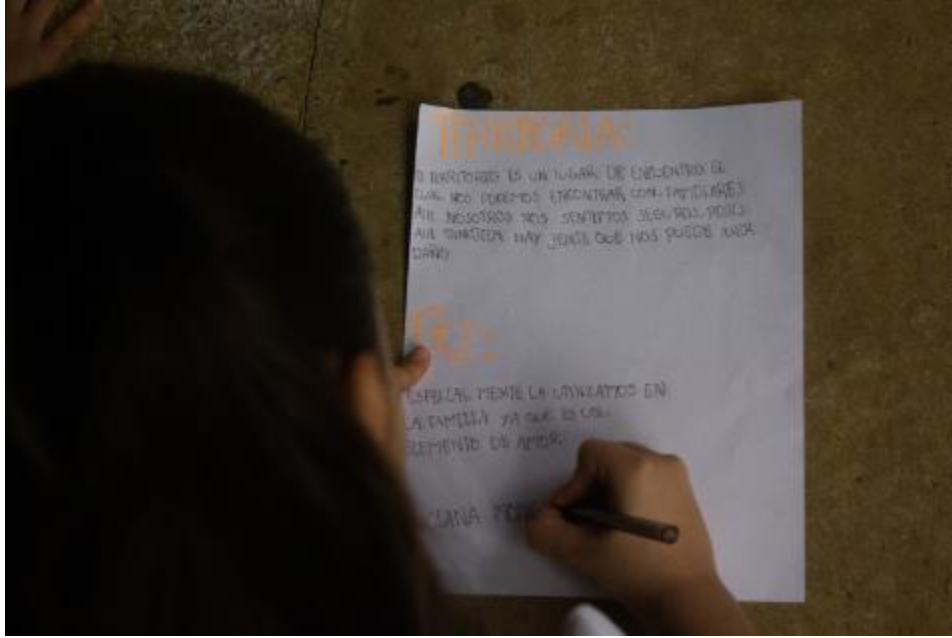 TERRITORIO ES UN LUGAR DE ENCUENTRO EL
CUAL NOS PODEMOS ENCONTRAR CON FAMILIARES
AHI NOSOTROS NOS SENTIMOS SEGUROS, PUES
AHI HAY JENTE QUE NOS PUEDE
DAÑO
ESPECIAL MENTE LA UTILIZAMOS EN
LA FAMILIA YA QUE ES UN
ELEMENTO DE AMOR.